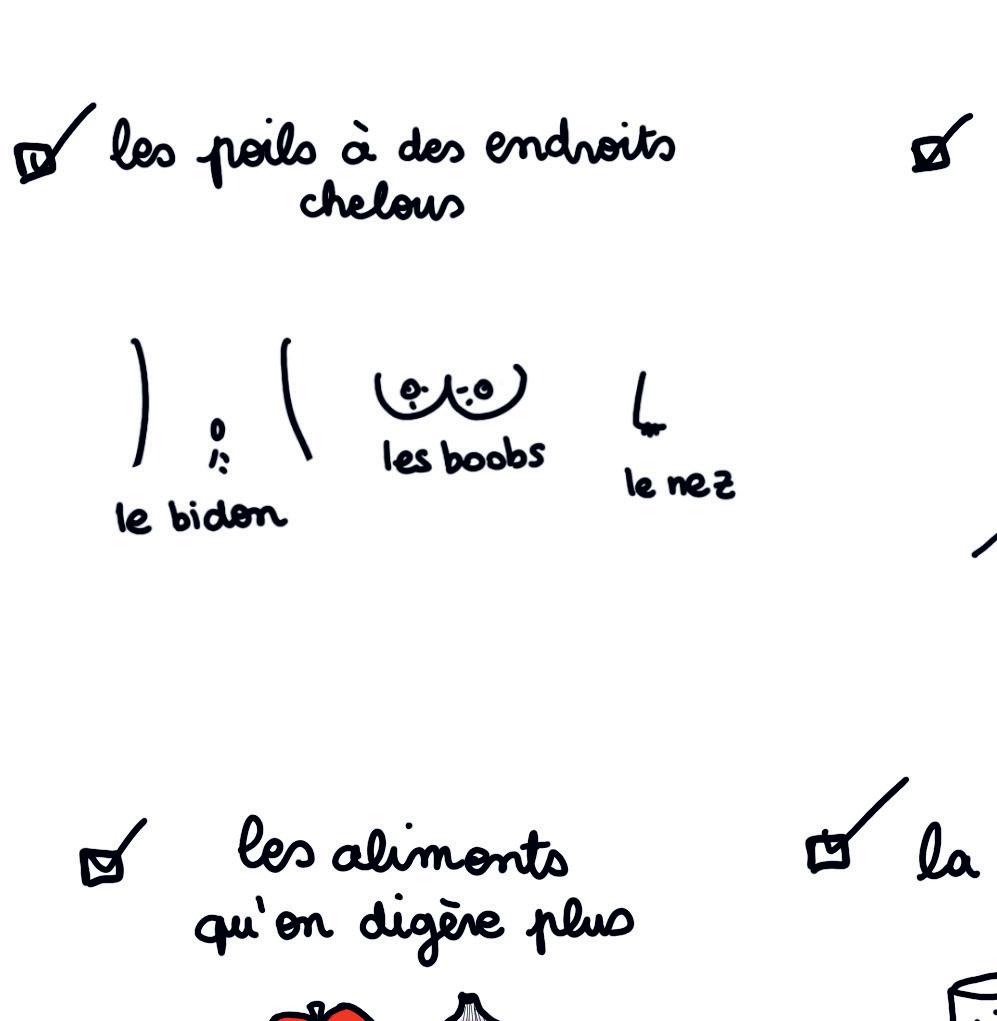 les poils à des endroits
chelous
le bidon
les boobs
le nez
les aliments
qu'on digère plus
la